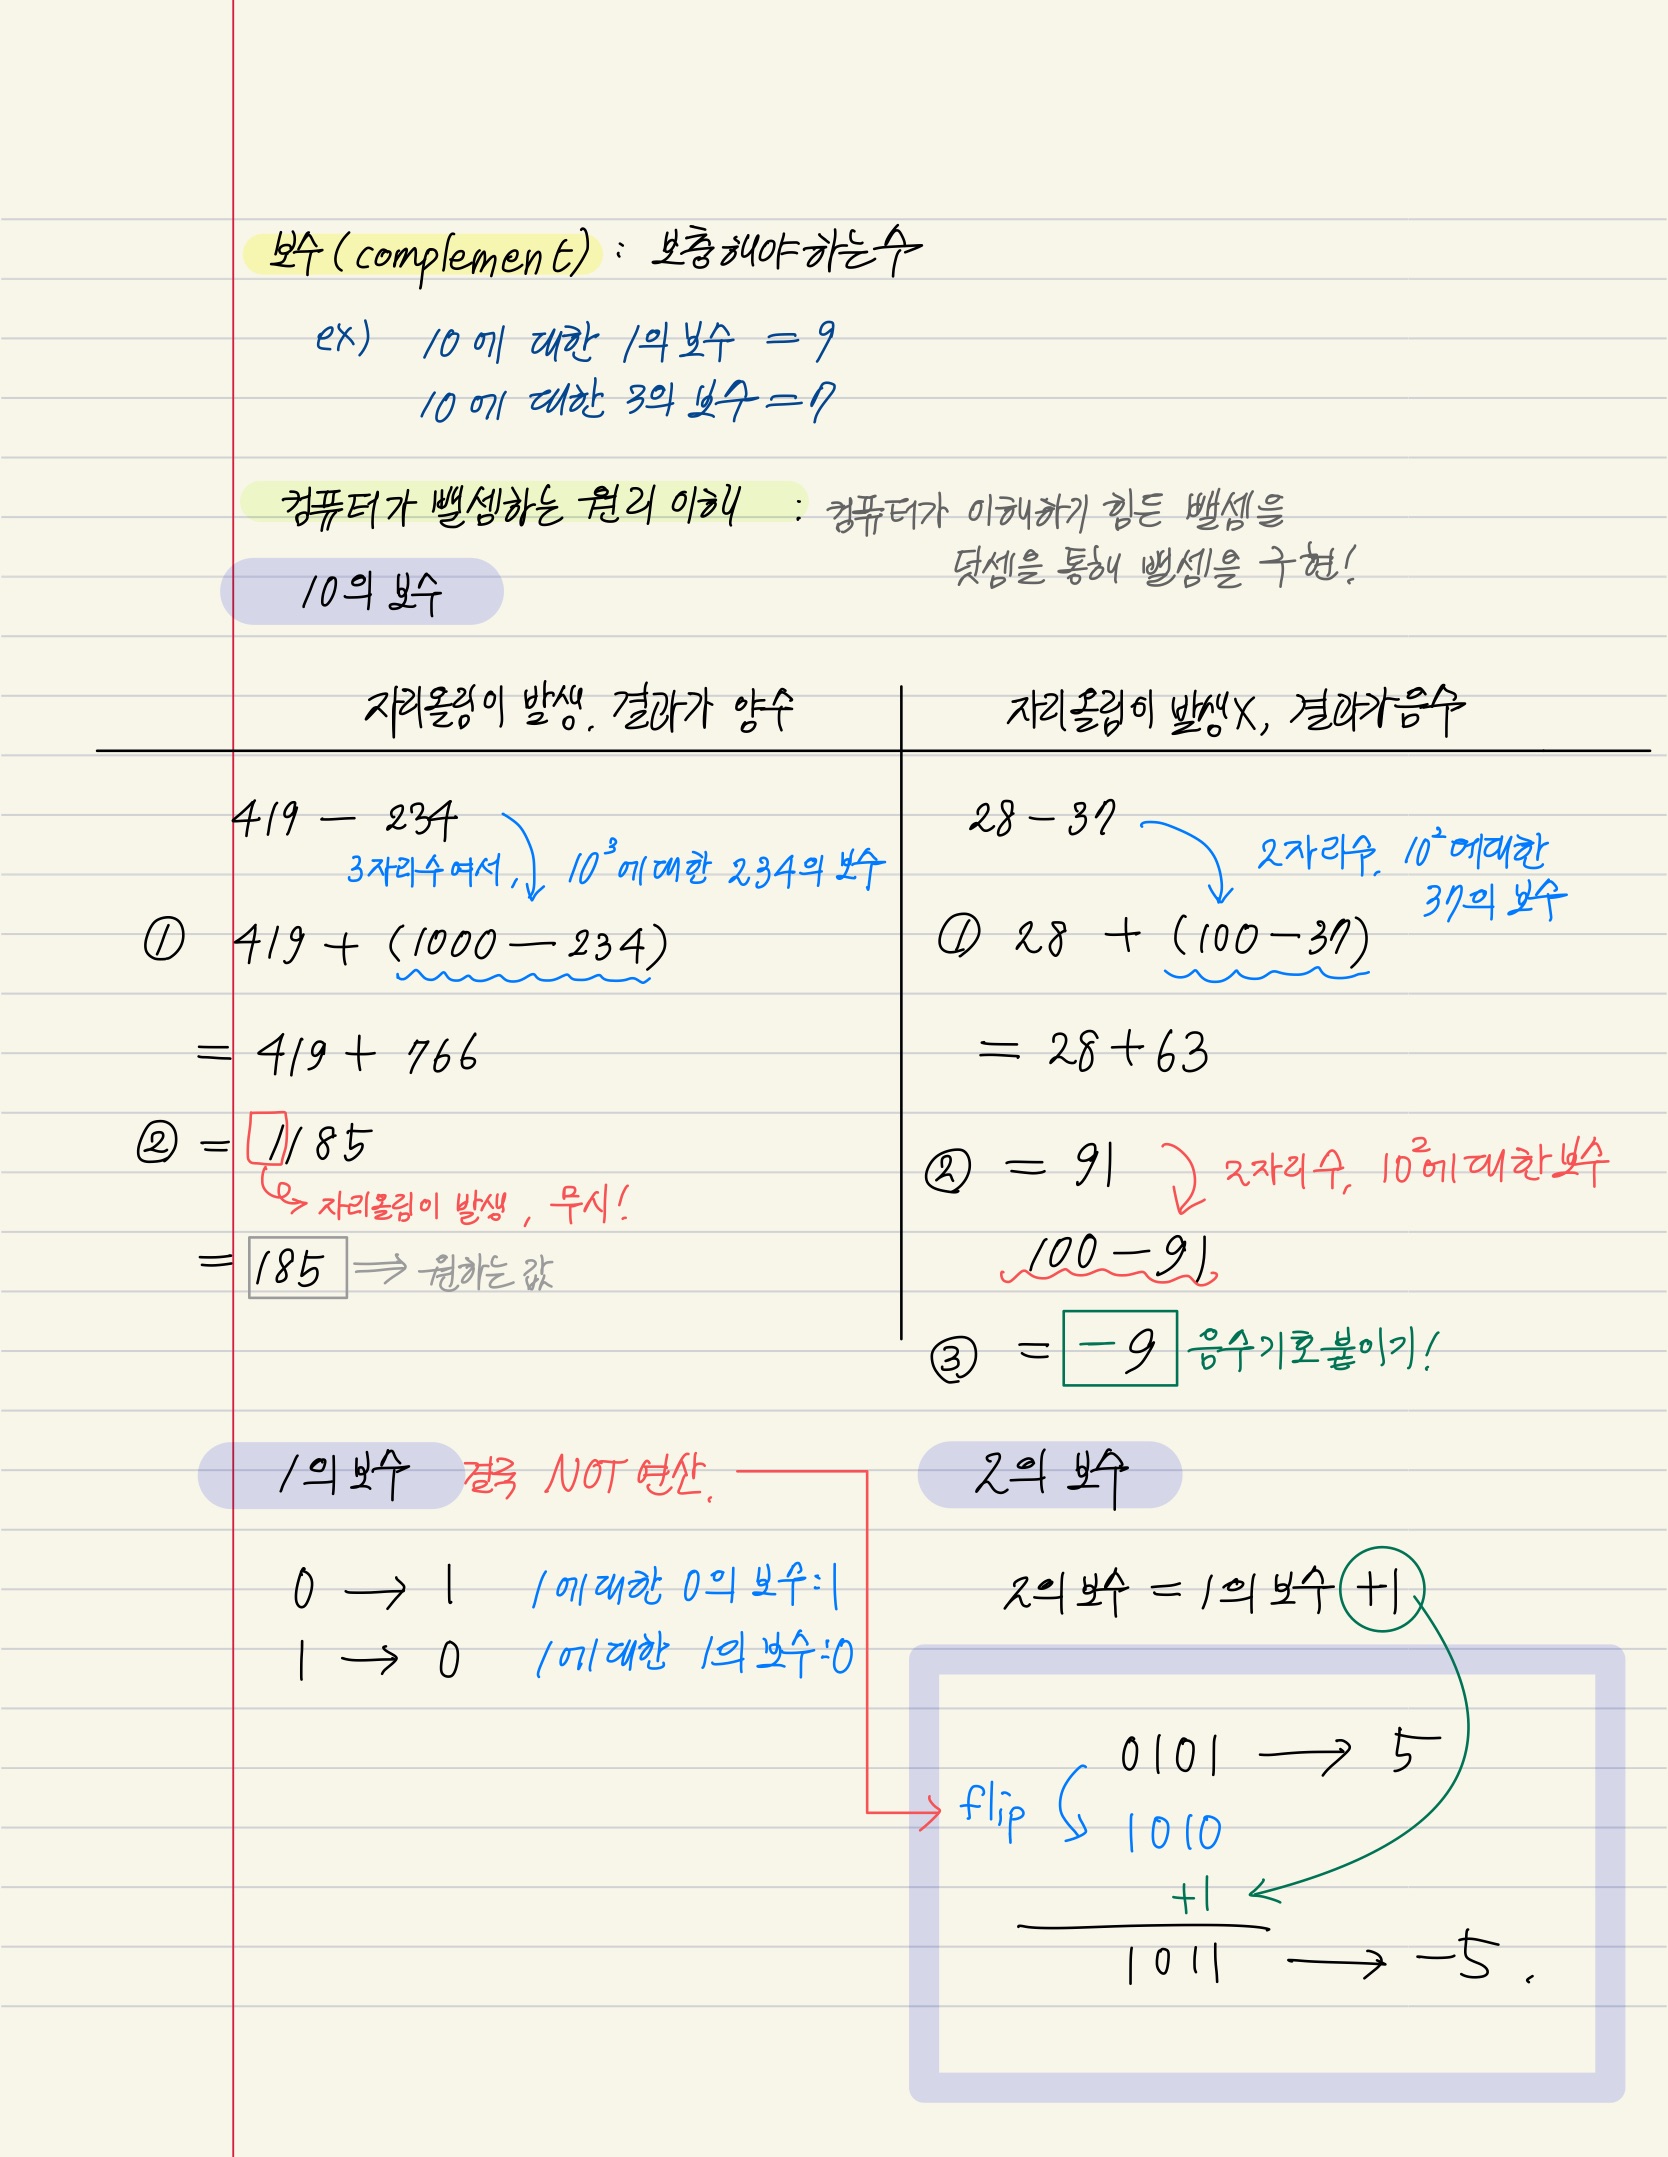 보수(complement) : 보충해야하는수
ex) 10에 대한 1의 보수 = 9
10에 대한 3의 보수 = 7
컴퓨터가 뺄셈하는 원리 이해 : 컴퓨터가 이해하기 힘든 뺄셈을
덧셈을 통해 뺄셈을 구현!
10의 보수
자리올림이 발생. 결과가 양수
419 - 234
3자리수여서, 10³에 대한 234의 보수
① 419 + (1000 - 234)
= 419 + 766
② = 1185
자리올림이 발생, 무시!
= 185 ⇒ 원하는 값
자리올림이 발생X, 결과가음수
28 - 37
2자리수, 10²에대한
37의 보수
① 28 + (100 - 37)
= 28 + 63
② = 91
2자리수, 10²에대한보수
100 - 91
③ = -9 음수기호붙이기!
1의 보수 결국 NOT 연산.
0 → 1 1에대한 0의 보수:1
1 → 0 1에대한 1의 보수:0
2의 보수
2의 보수 = 1의 보수 +1
0101 → 5
flip 1010
+1
1011 → -5.